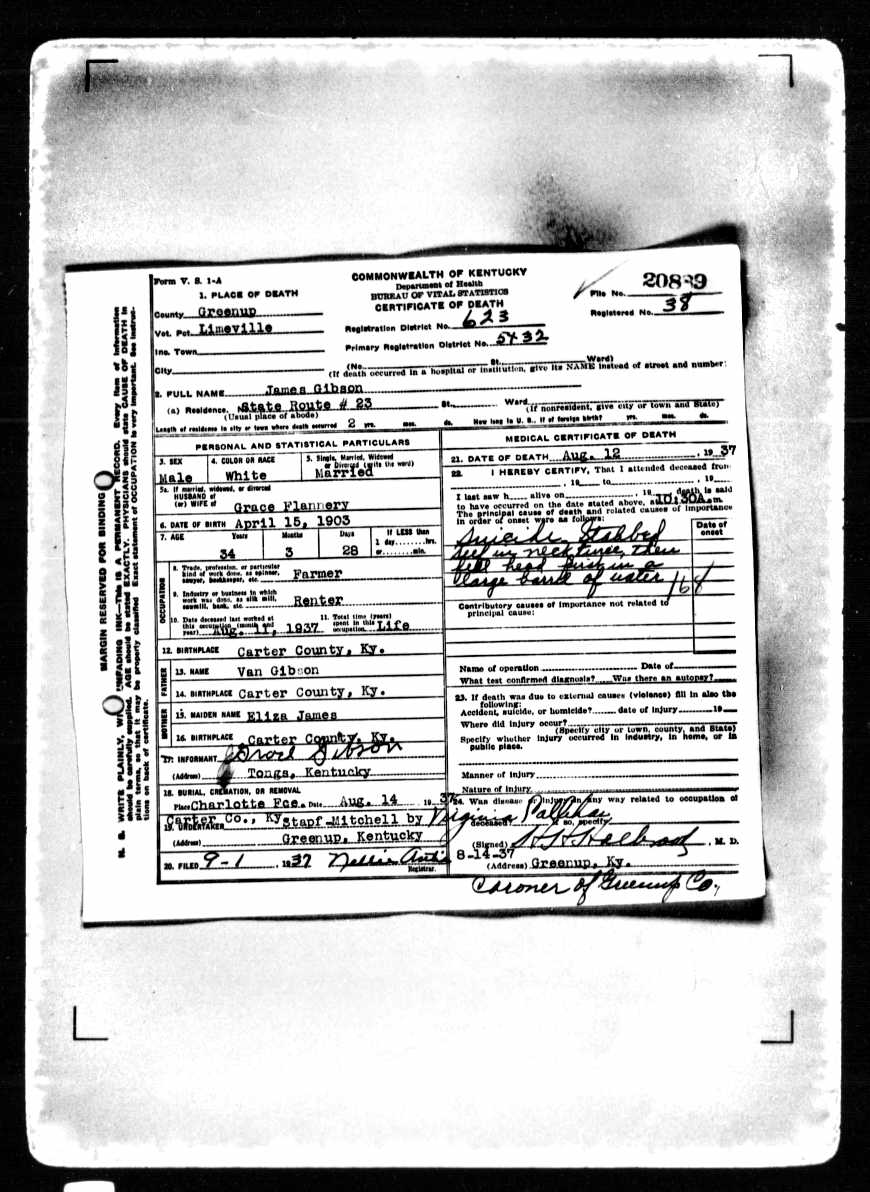 Form V. S. 1-A
COMMONWEALTH OF KENTUCKY
Department of Health
BUREAU OF VITAL STATISTICS
CERTIFICATE OF DEATH
File No. 20889
Registered No. 38
Registration District No. 623
Primary Registration District No. 5432
1. PLACE OF DEATH
County Greenup
Vot. Pct. Limeville
Inc. Town
City
(No. St. Ward)
(If death occurred in a hospital or institution, give its NAME instead of street and number:
2. FULL NAME James Gibson
(a) Residence. No. State Route # 23 St. Ward
(Usual place of abode) (If nonresident, give city or town and State)
Length of residence in city or town where death occurred 2 yrs. mos. ds. How long in U. S., if of foreign birth? yrs. mos. ds.
PERSONAL AND STATISTICAL PARTICULARS
3. SEX
Male
4. COLOR OR RACE
White
5. Single, Married, Widowed
or Divorced (write the word)
Married
5a. If married, widowed, or divorced
HUSBAND of
(or) WIFE of Grace Flannery
6. DATE OF BIRTH April 15, 1903
7. AGE Years Months Days If LESS than
1 day........hrs.
34 3 28 or........min.
OCCUPATION
8. Trade, profession, or particular
kind of work done, as spinner,
sawyer, bookkeeper, etc. Farmer
9. Industry or business in which
work was done, as silk mill,
sawmill, bank, etc. Renter
10. Date deceased last worked at
this occupation (month and
year) Aug. 11, 1937
11. Total time (years)
spent in this
occupation Life
12. BIRTHPLACE Carter County, Ky.
FATHER
13. NAME Van Gibson
14. BIRTHPLACE Carter County, Ky.
MOTHER
15. MAIDEN NAME Eliza James
16. BIRTHPLACE Carter County, Ky.
17. INFORMANT Gibson
(Address) Tonga, Kentucky
18. BURIAL, CREMATION, OR REMOVAL
Place Charlotte Fce. Date Aug. 14 1937
Carter Co., Ky
19. UNDERTAKER Stapf-Mitchell by Virginia
(Address) Greenup, Kentucky
20. FILED 9-1 1937 Nellie
Registrar.
MEDICAL CERTIFICATE OF DEATH
21. DATE OF DEATH Aug. 12, 1937
22. I HEREBY CERTIFY, That I attended deceased from
, 19 to , 19
I last saw h alive on , 19 death is said
to have occurred on the date stated above, at 10:30A.m.
The principal cause of death and related causes of importance
in order of onset were as follows:
Date of
onset
Suicide Stabbed
self in neck twice, then
fell head first in a
large barrel of water 164
Contributory causes of importance not related to
principal cause:
Name of operation Date of
What test confirmed diagnosis? Was there an autopsy?
23. If death was due to external causes (violence) fill in also the
following:
Accident, suicide, or homicide? date of injury 19
Where did injury occur?
(Specify city or town, county, and State)
Specify whether injury occurred in industry, in home, or in
public place.
Manner of injury
Nature of injury
24. Was disease or injury in any way related to occupation of
deceased? If so, specify
(Signed) Holbrook, M. D.
8-14-37
(Address) Greenup, Ky.
Coroner of Greenup Co.,
MARGIN RESERVED FOR BINDING
N. B. WRITE PLAINLY, WITH UNFADING INK—This is A PERMANENT RECORD. Every item of information
should be carefully supplied. AGE should be stated EXACTLY. PHYSICIANS should state CAUSE OF DEATH in
plain terms, so that it may be properly classified. Exact statement of OCCUPATION is very important. See instruc-
tions on back of certificate.